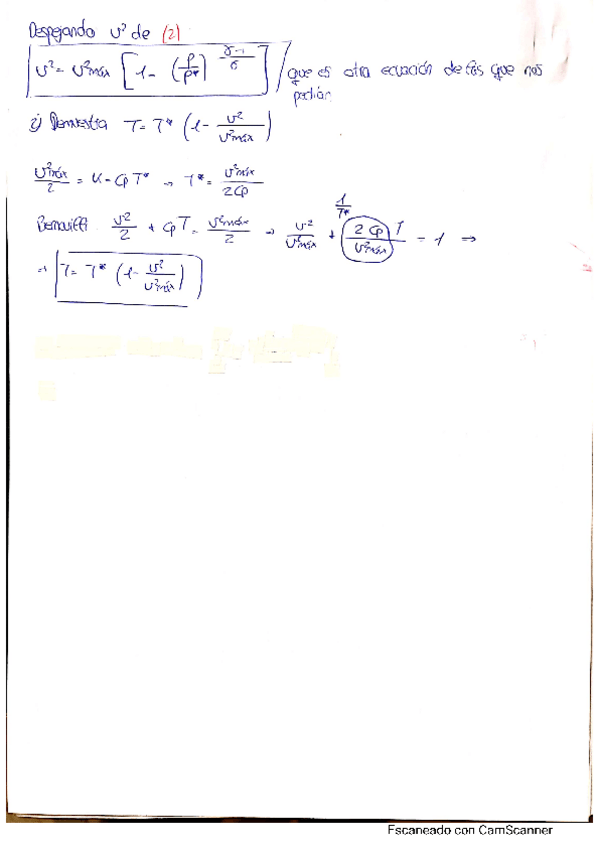 Despejando v² de (2)
v² = v²máx [1 - (P/P*)^((γ-1)/γ)] que es otra ecuación de las que nos
pedían.
i) Demuestra T = T* (1 - v²/v²máx)
v²máx/2 = K = Cp T* → T* = v²máx/2Cp
Bernoulli v²/2 + Cp T = v²máx/2 → v²/v²máx + 2 Cp/v²máx T = 1 ⇒
1/T*
⇒ T = T* (1 - v²/v²máx)
Escaneado con CamScanner